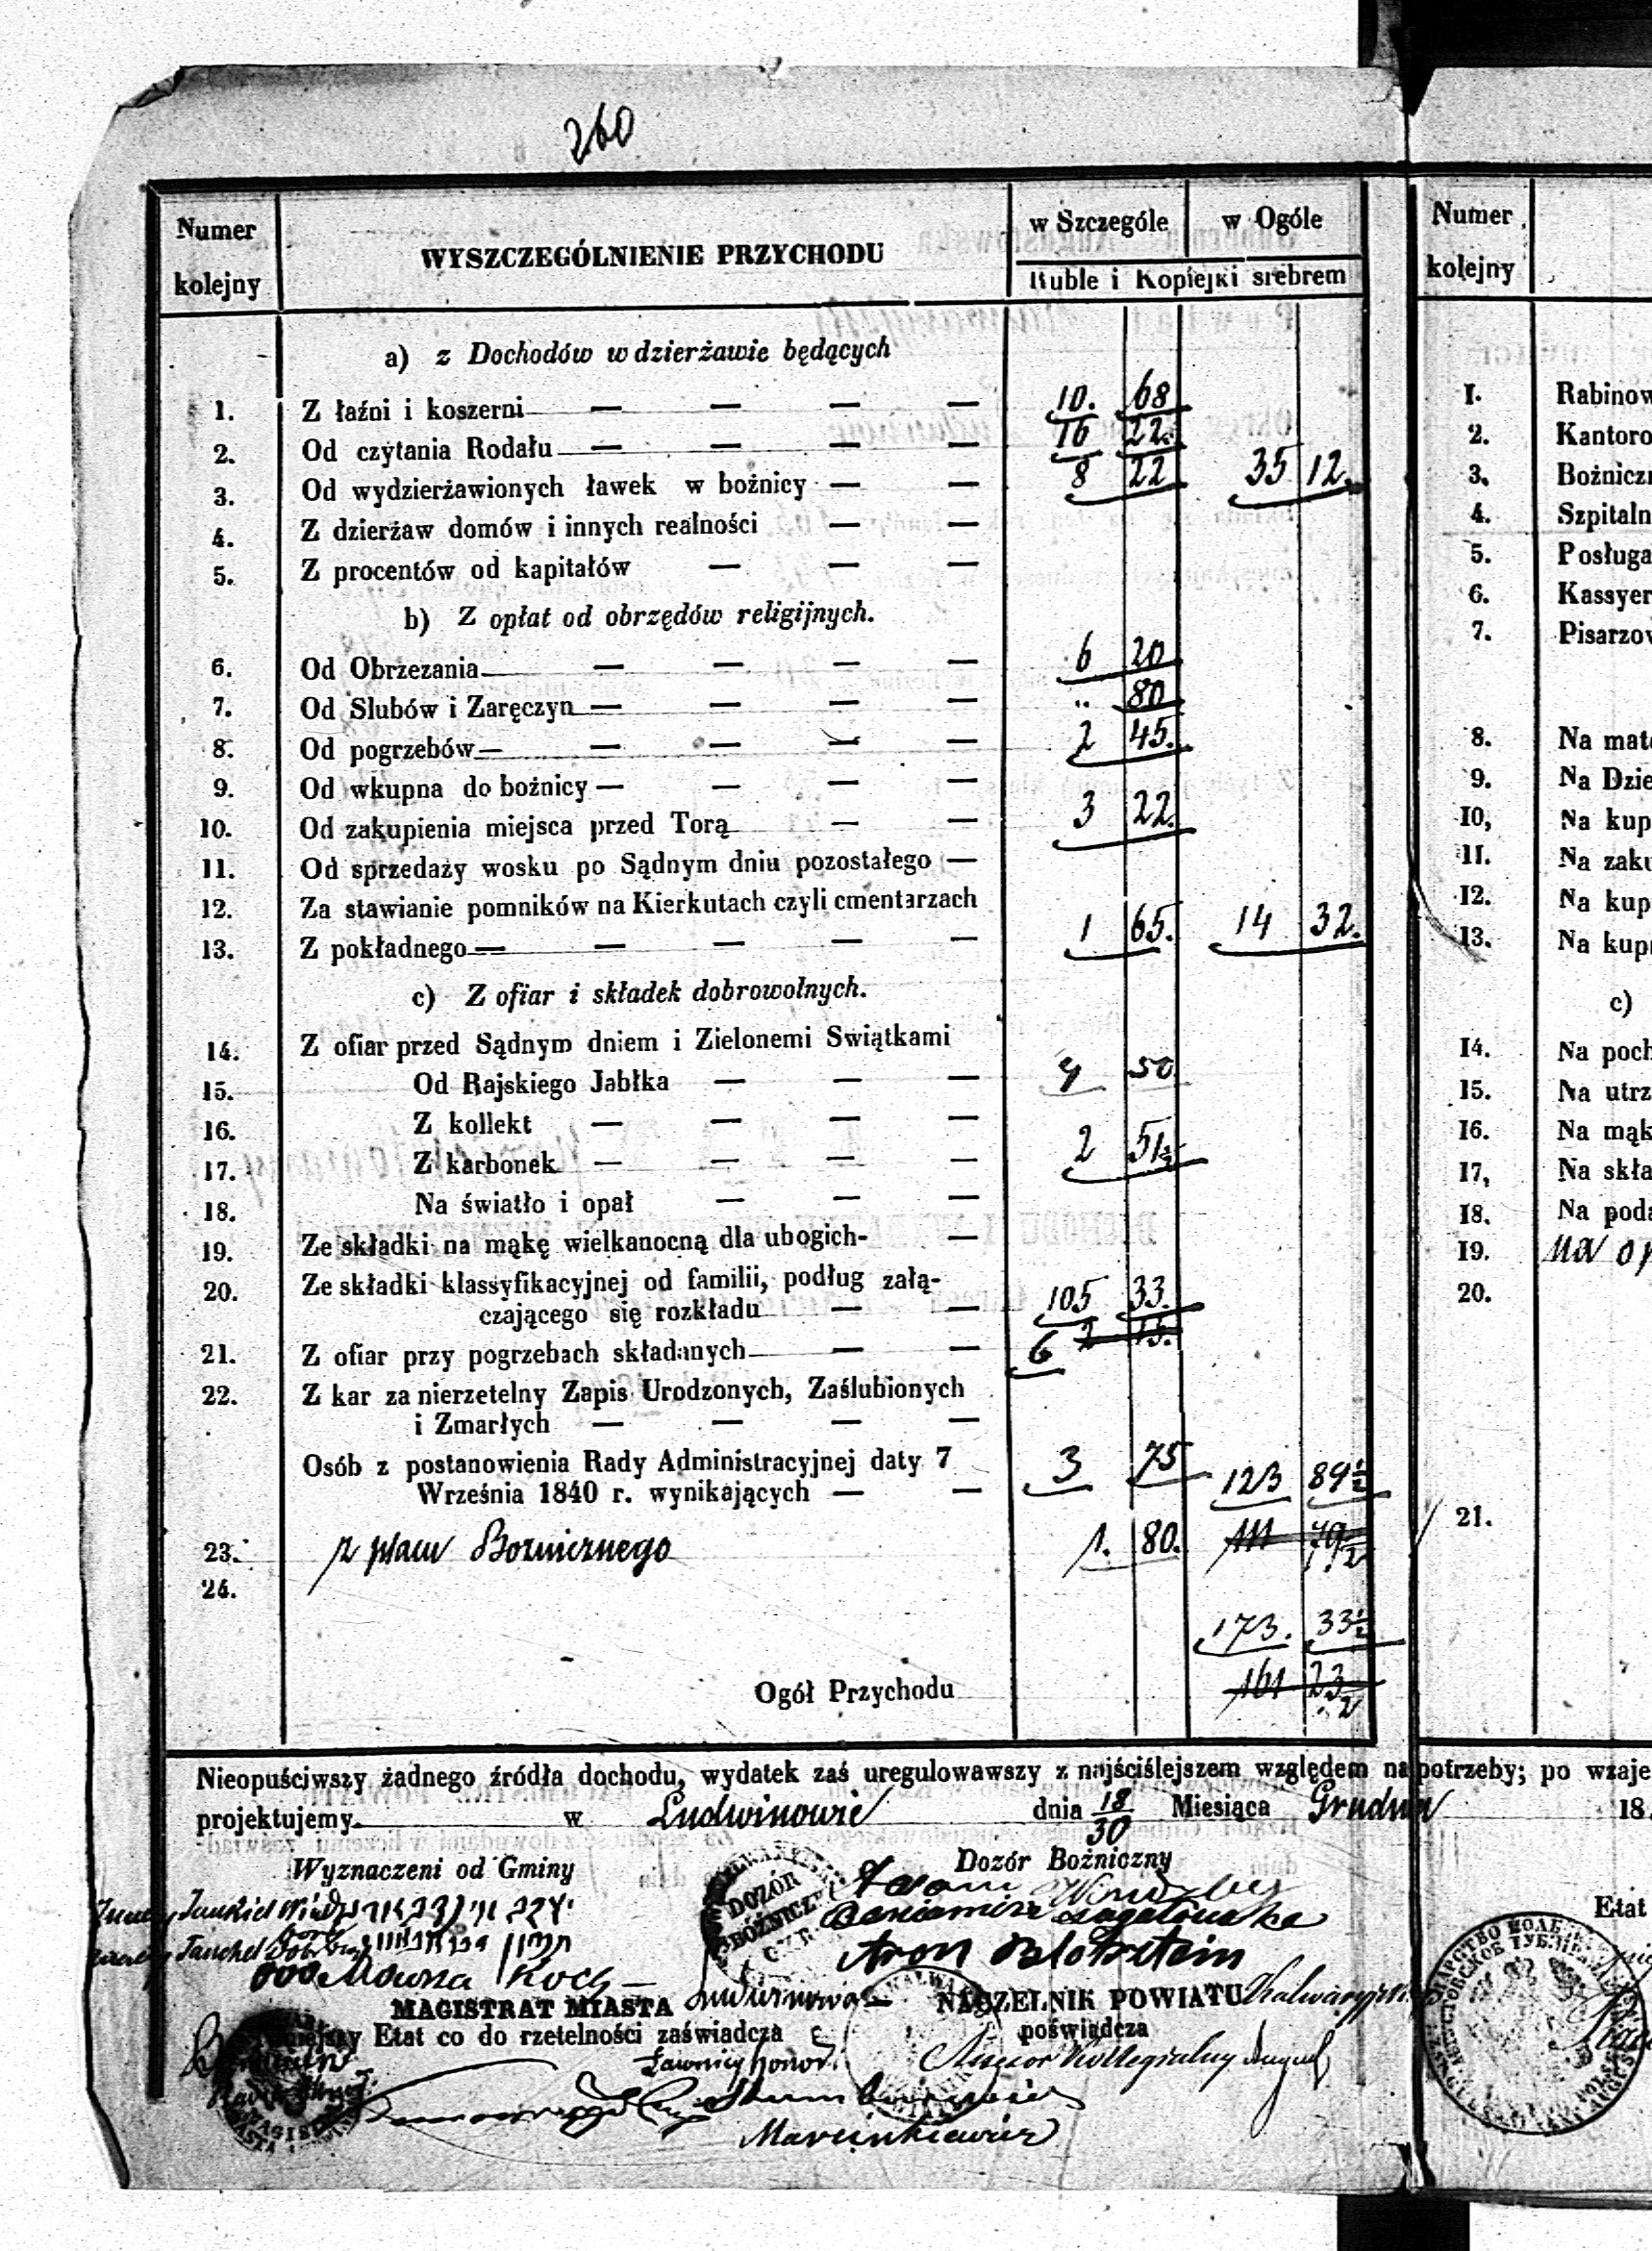 260
Numer kolejny WYSZCZEGÓLNIENIE PRZYCHODU w Szczególe w Ogóle
Ruble i Kopiejki srebrem
a) z Dochodów w dzierżawie będących
1. Z łaźni i koszerni — — — — 10. 68
2. Od czytania Rodału — — — — 16 22.
3. Od wydzierżawionych ławek w bożnicy — — 8 22 35 12.
4. Z dzierżaw domów i innych realności — —
5. Z procentów od kapitałów — — —
b) Z opłat od obrzędów religijnych.
6. Od Obrzezania — — — — 6 20
7. Od Slubów i Zaręczyn — — — — " 80
8. Od pogrzebów — — — — — 2 45.
9. Od wkupna do bożnicy — — — —
10. Od zakupienia miejsca przed Torą — — 3 22.
11. Od sprzedaży wosku po Sądnym dniu pozostałego —
12. Za stawianie pomników na Kierkutach czyli cmentarzach
13. Z pokładnego — — — — — 1 65. 14 32.
c) Z ofiar i składek dobrowolnych.
14. Z ofiar przed Sądnym dniem i Zielonemi Swiątkami
15. Od Rajskiego Jabłka — — — 4 50
16. Z kollekt — — — —
17. Z karbonek — — — — 2 51½
18. Na światło i opał — — —
19. Ze składki na mąkę wielkanocną dla ubogich- —
20. Ze składki klassyfikacyjnej od familii, podług załą-
czającego się rozkładu — — 105 33.
21. Z ofiar przy pogrzebach składanych — — 6 2 15.
22. Z kar za nierzetelny Zapis Urodzonych, Zaślubionych
i Zmarłych — — — —
Osób z postanowienia Rady Administracyjnej daty 7
Września 1840 r. wynikających — — 3 75 123 89½
23. z placu Bożnicznego 1. 80. 111 79½
24.
173. 33½
Ogół Przychodu 161 23½
Nieopuściwszy żadnego źródła dochodu, wydatek zaś uregulowawszy z najściślejszem względem na potrzeby; po wzaje
projektujemy w Ludwinowie dnia 18/30 Miesiąca Grudnia 18
Wyznaczeni od Gminy Dozór Bożniczny
DOZÓR BÓŻNICZY
Jankiel
Aron
Mowsza Koch
MAGISTRAT MIASTA Ludwinowa NACZELNIK POWIATU Kalwaryjski
Etat co do rzetelności zaświadcza poświadcza
Ławnicy honor. Assesor Kollegialny
Marcinkiewicz
Numer kolejny
1. Rabinow
2. Kantoro
3. Bożnicz
4. Szpitaln
5. Posługa
6. Kassyer
7. Pisarzow
8. Na mat
9. Na Dzie
10, Na kup
11. Na zaku
12. Na kup
13. Na kup
c)
14. Na poch
15. Na utrz
16. Na mąk
17, Na skła
18. Na poda
19. na op
20.
21.
Etat